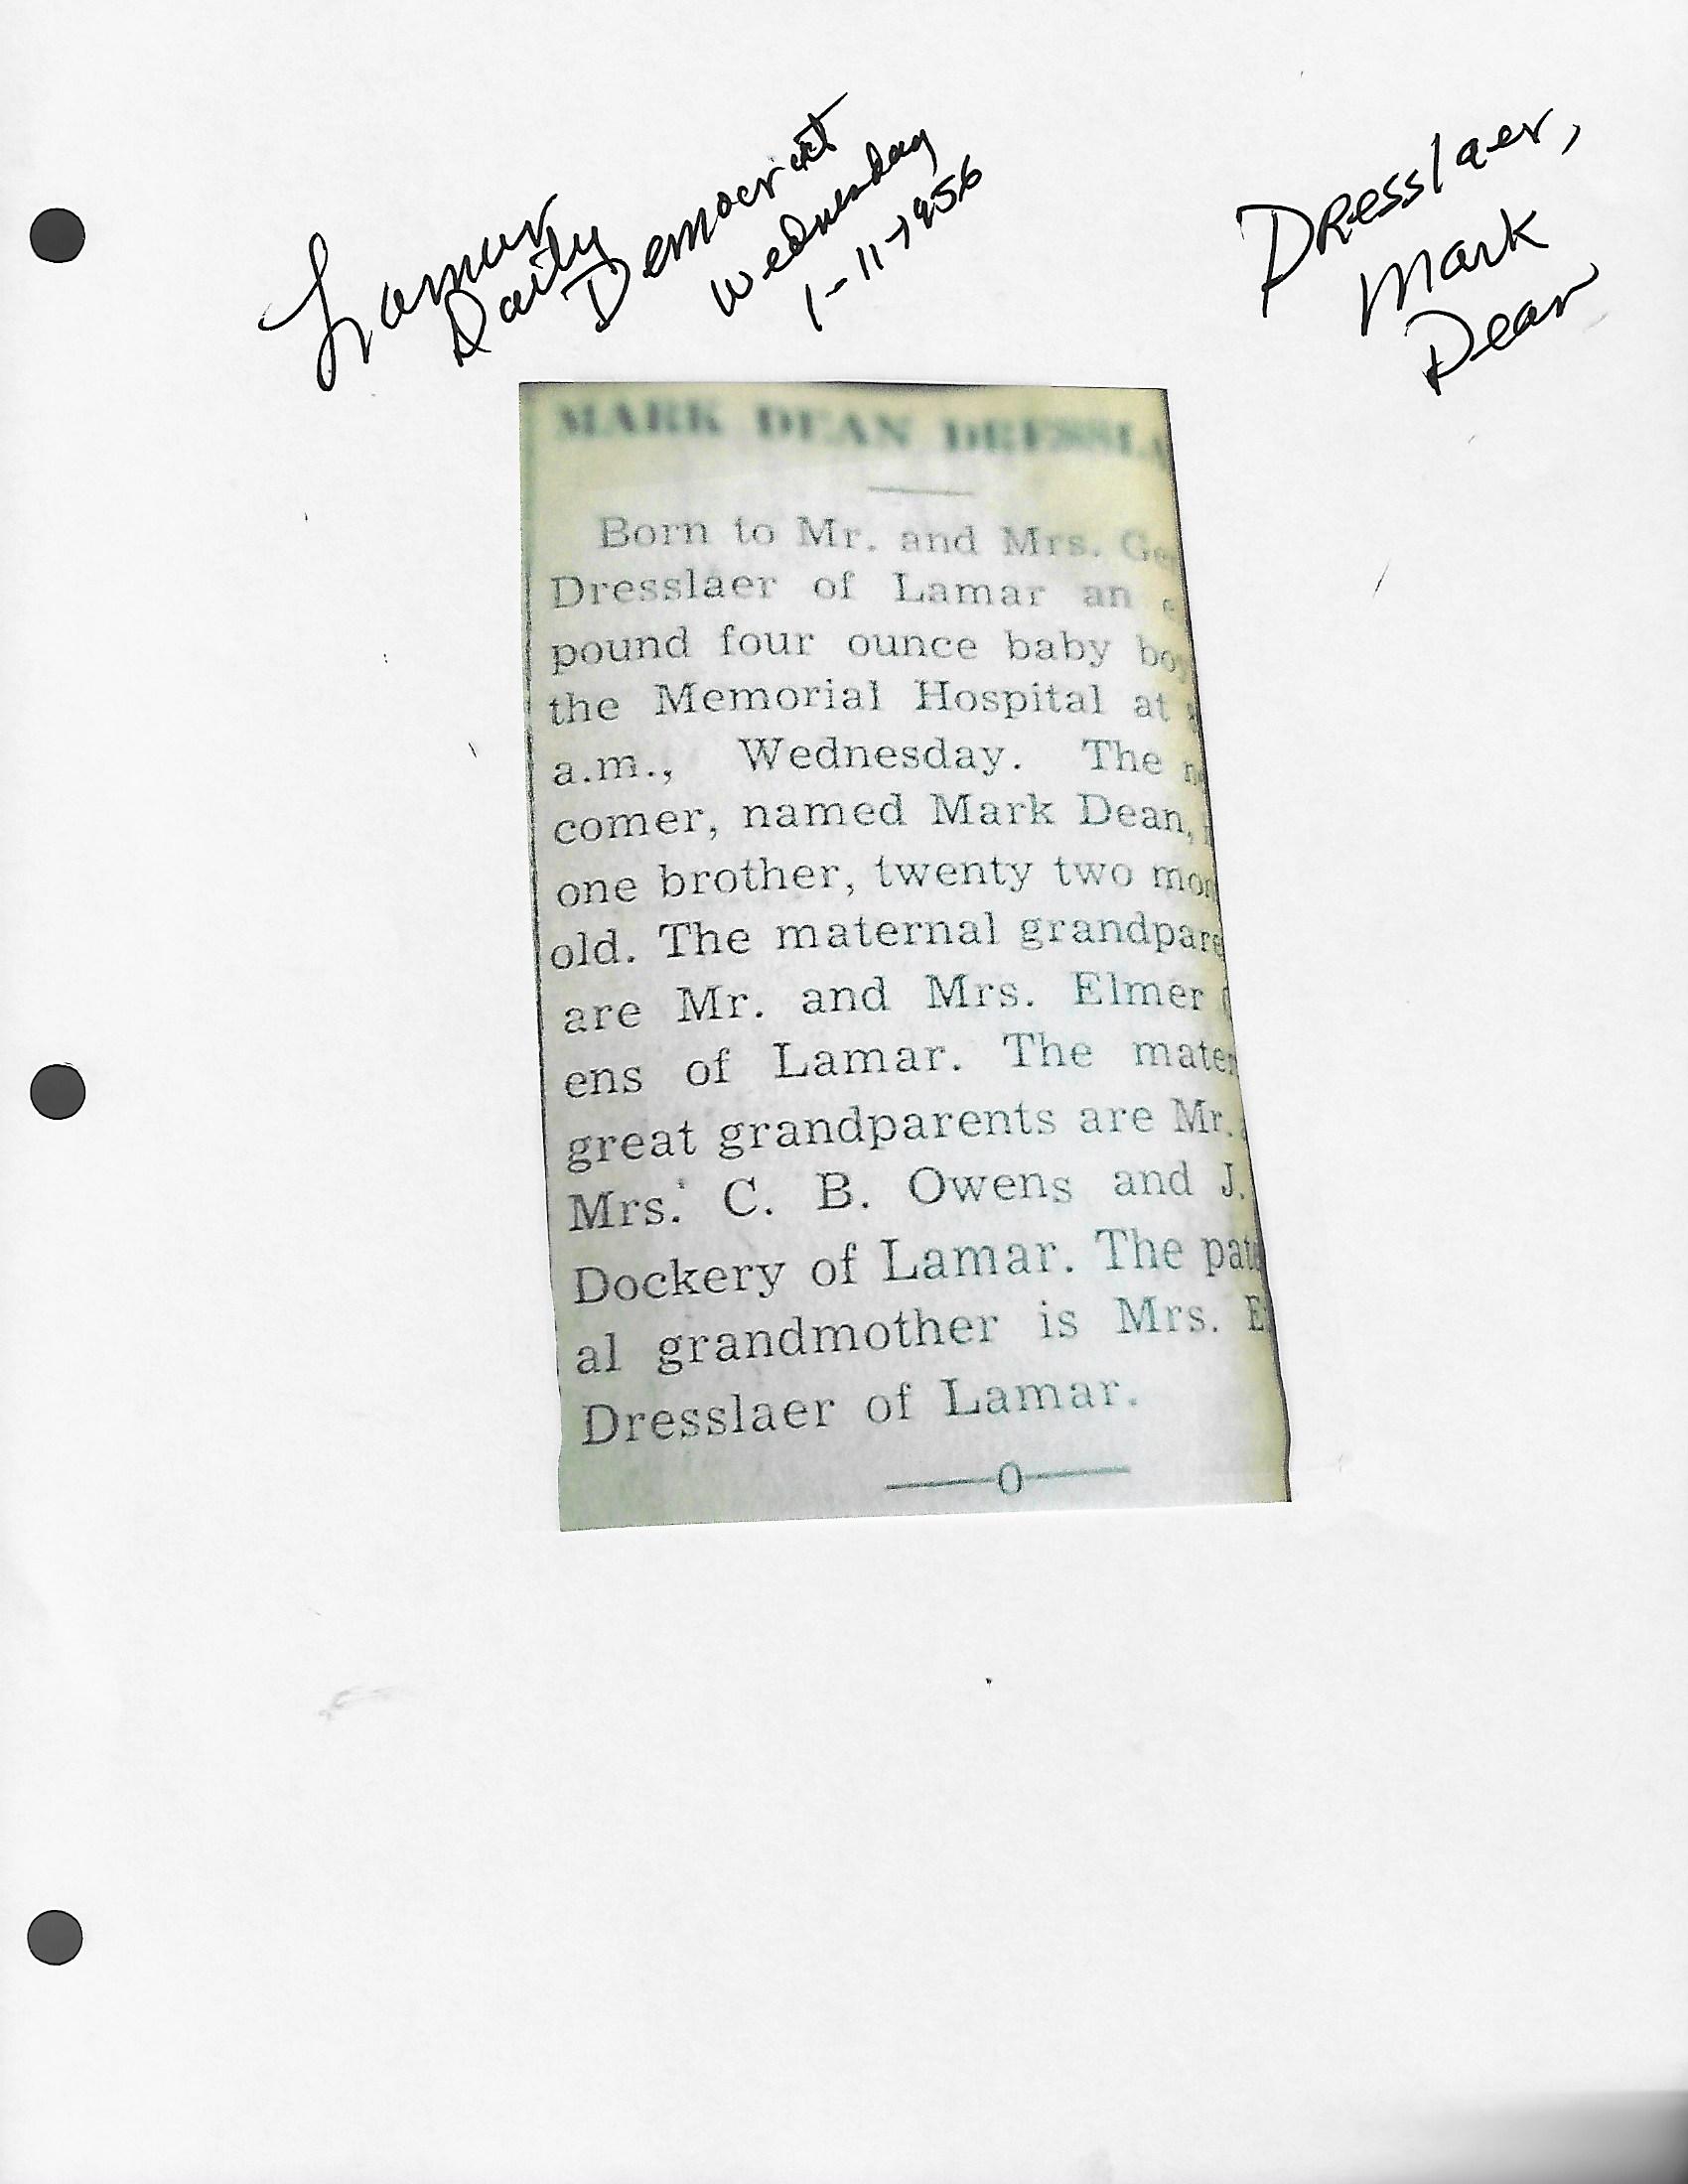 Lamar
Daily
Democrat
Wednesday
1-11-1956
Dresslaer,
Mark
Dean
MARK DEAN DRESSLA
Born to Mr. and Mrs. Ge
Dresslaer of Lamar an e
pound four ounce baby boy
the Memorial Hospital at
a.m., Wednesday. The n
comer, named Mark Dean,
one brother, twenty two mon
old. The maternal grandpare
are Mr. and Mrs. Elmer
ens of Lamar. The mater
great grandparents are Mr.
Mrs. C. B. Owens and J.
Dockery of Lamar. The pat
al grandmother is Mrs. E
Dresslaer of Lamar.
O